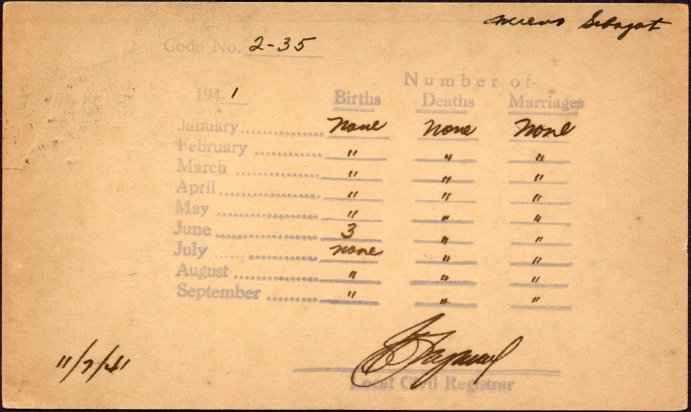 Code No. 2-35
Number of-
194 1 Births Deaths Marriages
January none none none
February " " "
March " " "
April " " "
May " " "
June 3 " "
July none " "
August " " "
September " " "
11/7/41
Local Civil Registrar